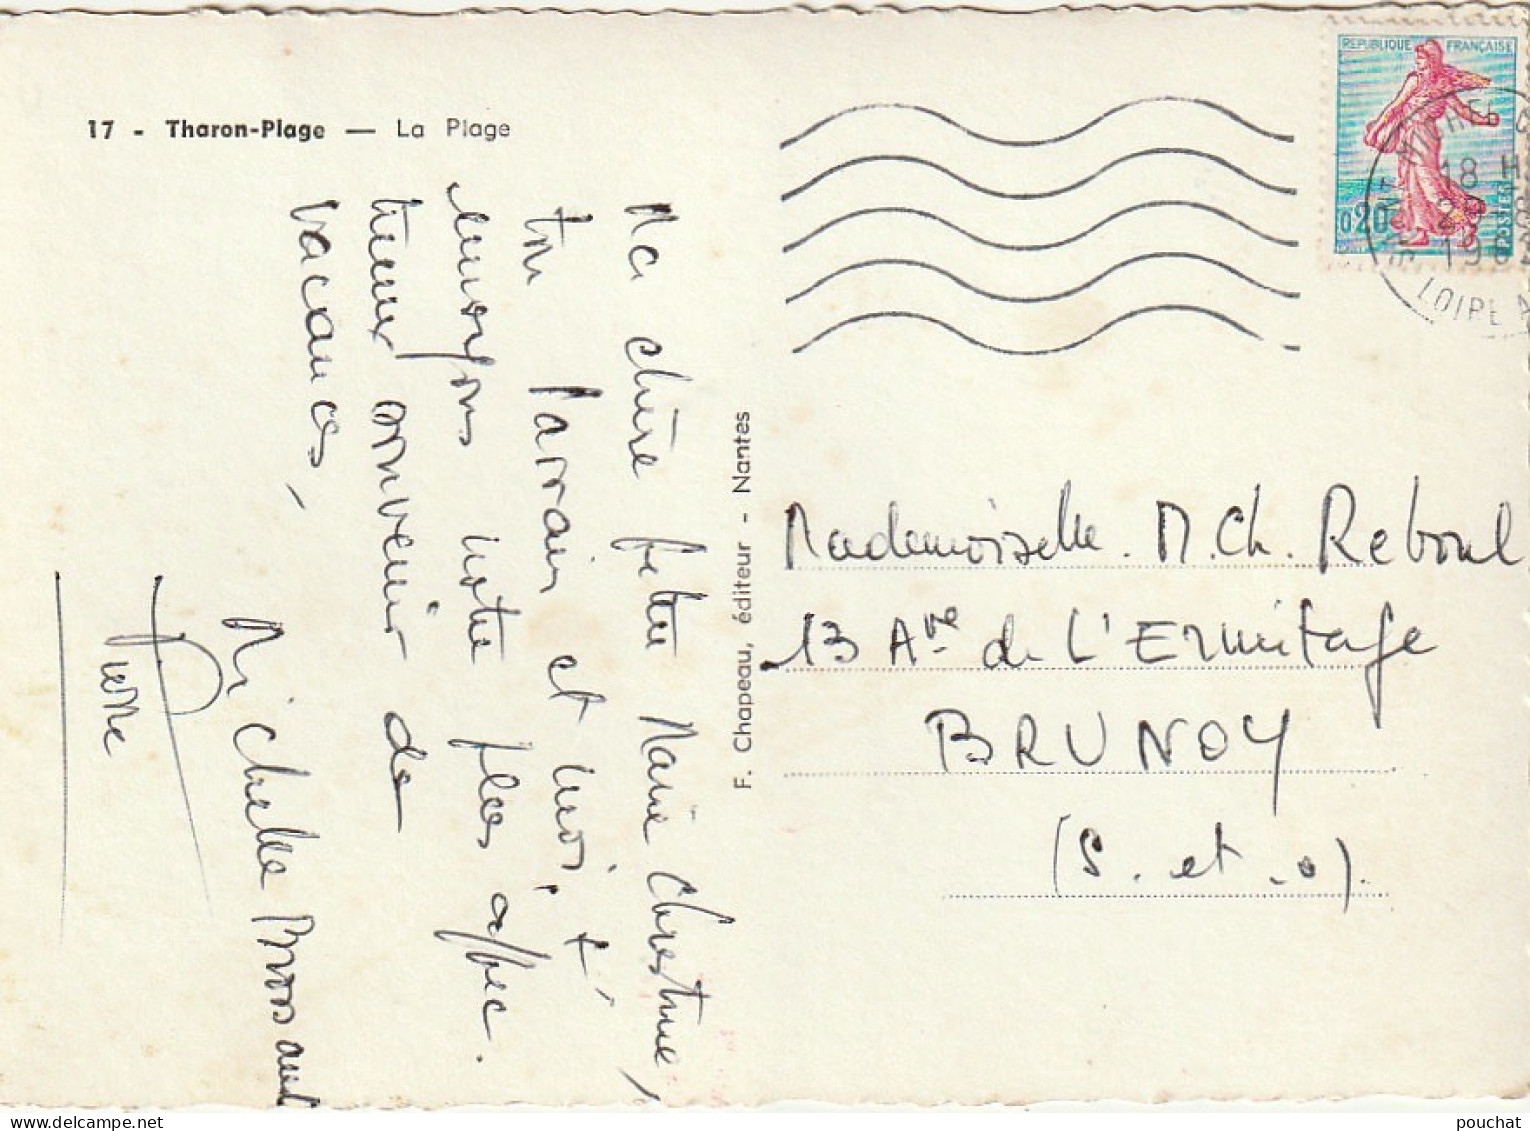 17 - Tharon-Plage — La Plage
Ma chère petite Marie Christine,
ton Parrain et moi, t'
envoyons notre plus affec.
tueux souvenir de
vacances,
Michelle
Pierre
F. Chapeau, éditeur - Nantes
REPUBLIQUE FRANÇAISE
0,20
POSTES
ST MICHEL
18 H
LOIRE
Mademoiselle. M. Ch. Reboul
13 Ave de L'Ermitage
BRUNOY
(S. et .o).
pouchat